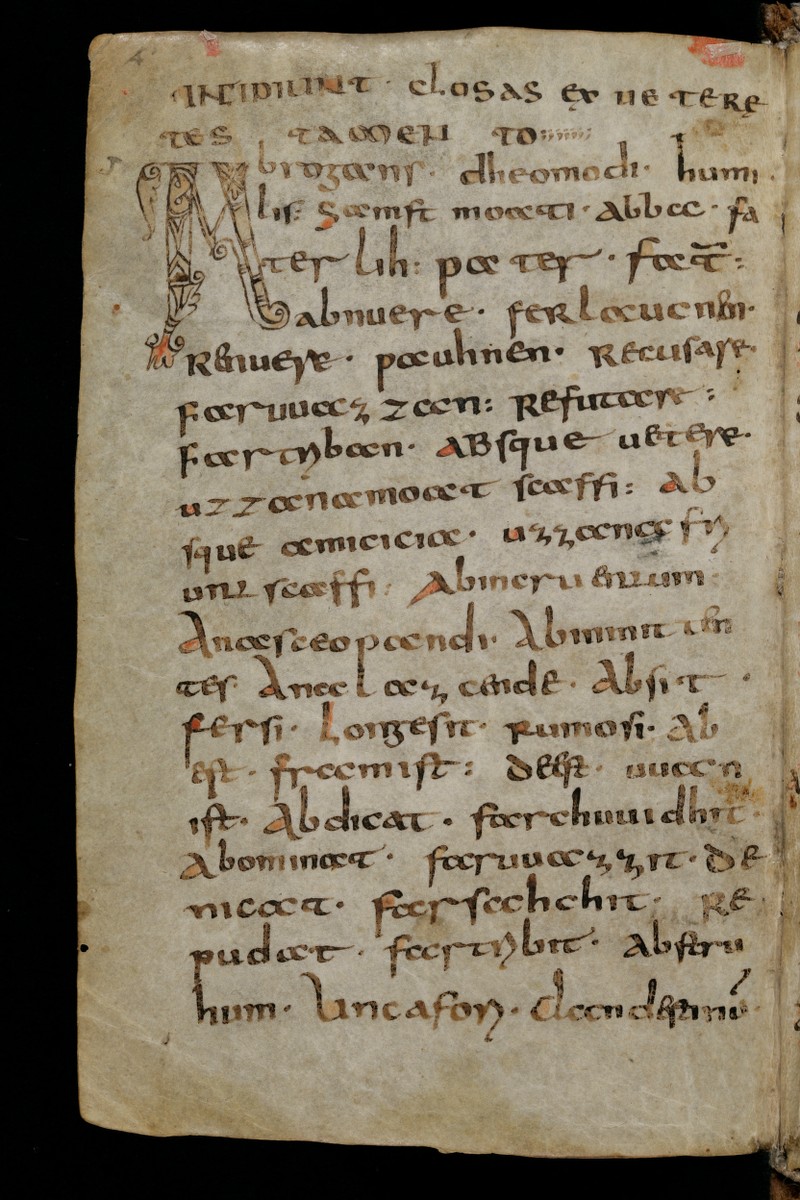 INCIPIUNT CLOSAS EX UETERE
TES TAMEN TO
Abrogans · dheomodi · humi
lis · samft moati · Abba · fa
ter lih: pater · fater:
abnuere · ferlaucnen ·
Renuere · pauhnen · Recusare ·
faruuazzan: Refutare:
fartriban · ABsque uetere ·
uzzanamoat scaffi: Ab
sque amicicia · uzzana fri
unt scaffi · Abincruentum ·
Anasceopandi · Abminiten
tes Anaclazende · Absit ·
fersi · Longesit · rumosi · Ab
est · framist: Deest · uuan
ist · Abdicat · farchuuidhit ·
Abominat · faruuazzit · De
nicat · farsahchit · Re
pudat · fartribit · Abstru
hum · clandestinu